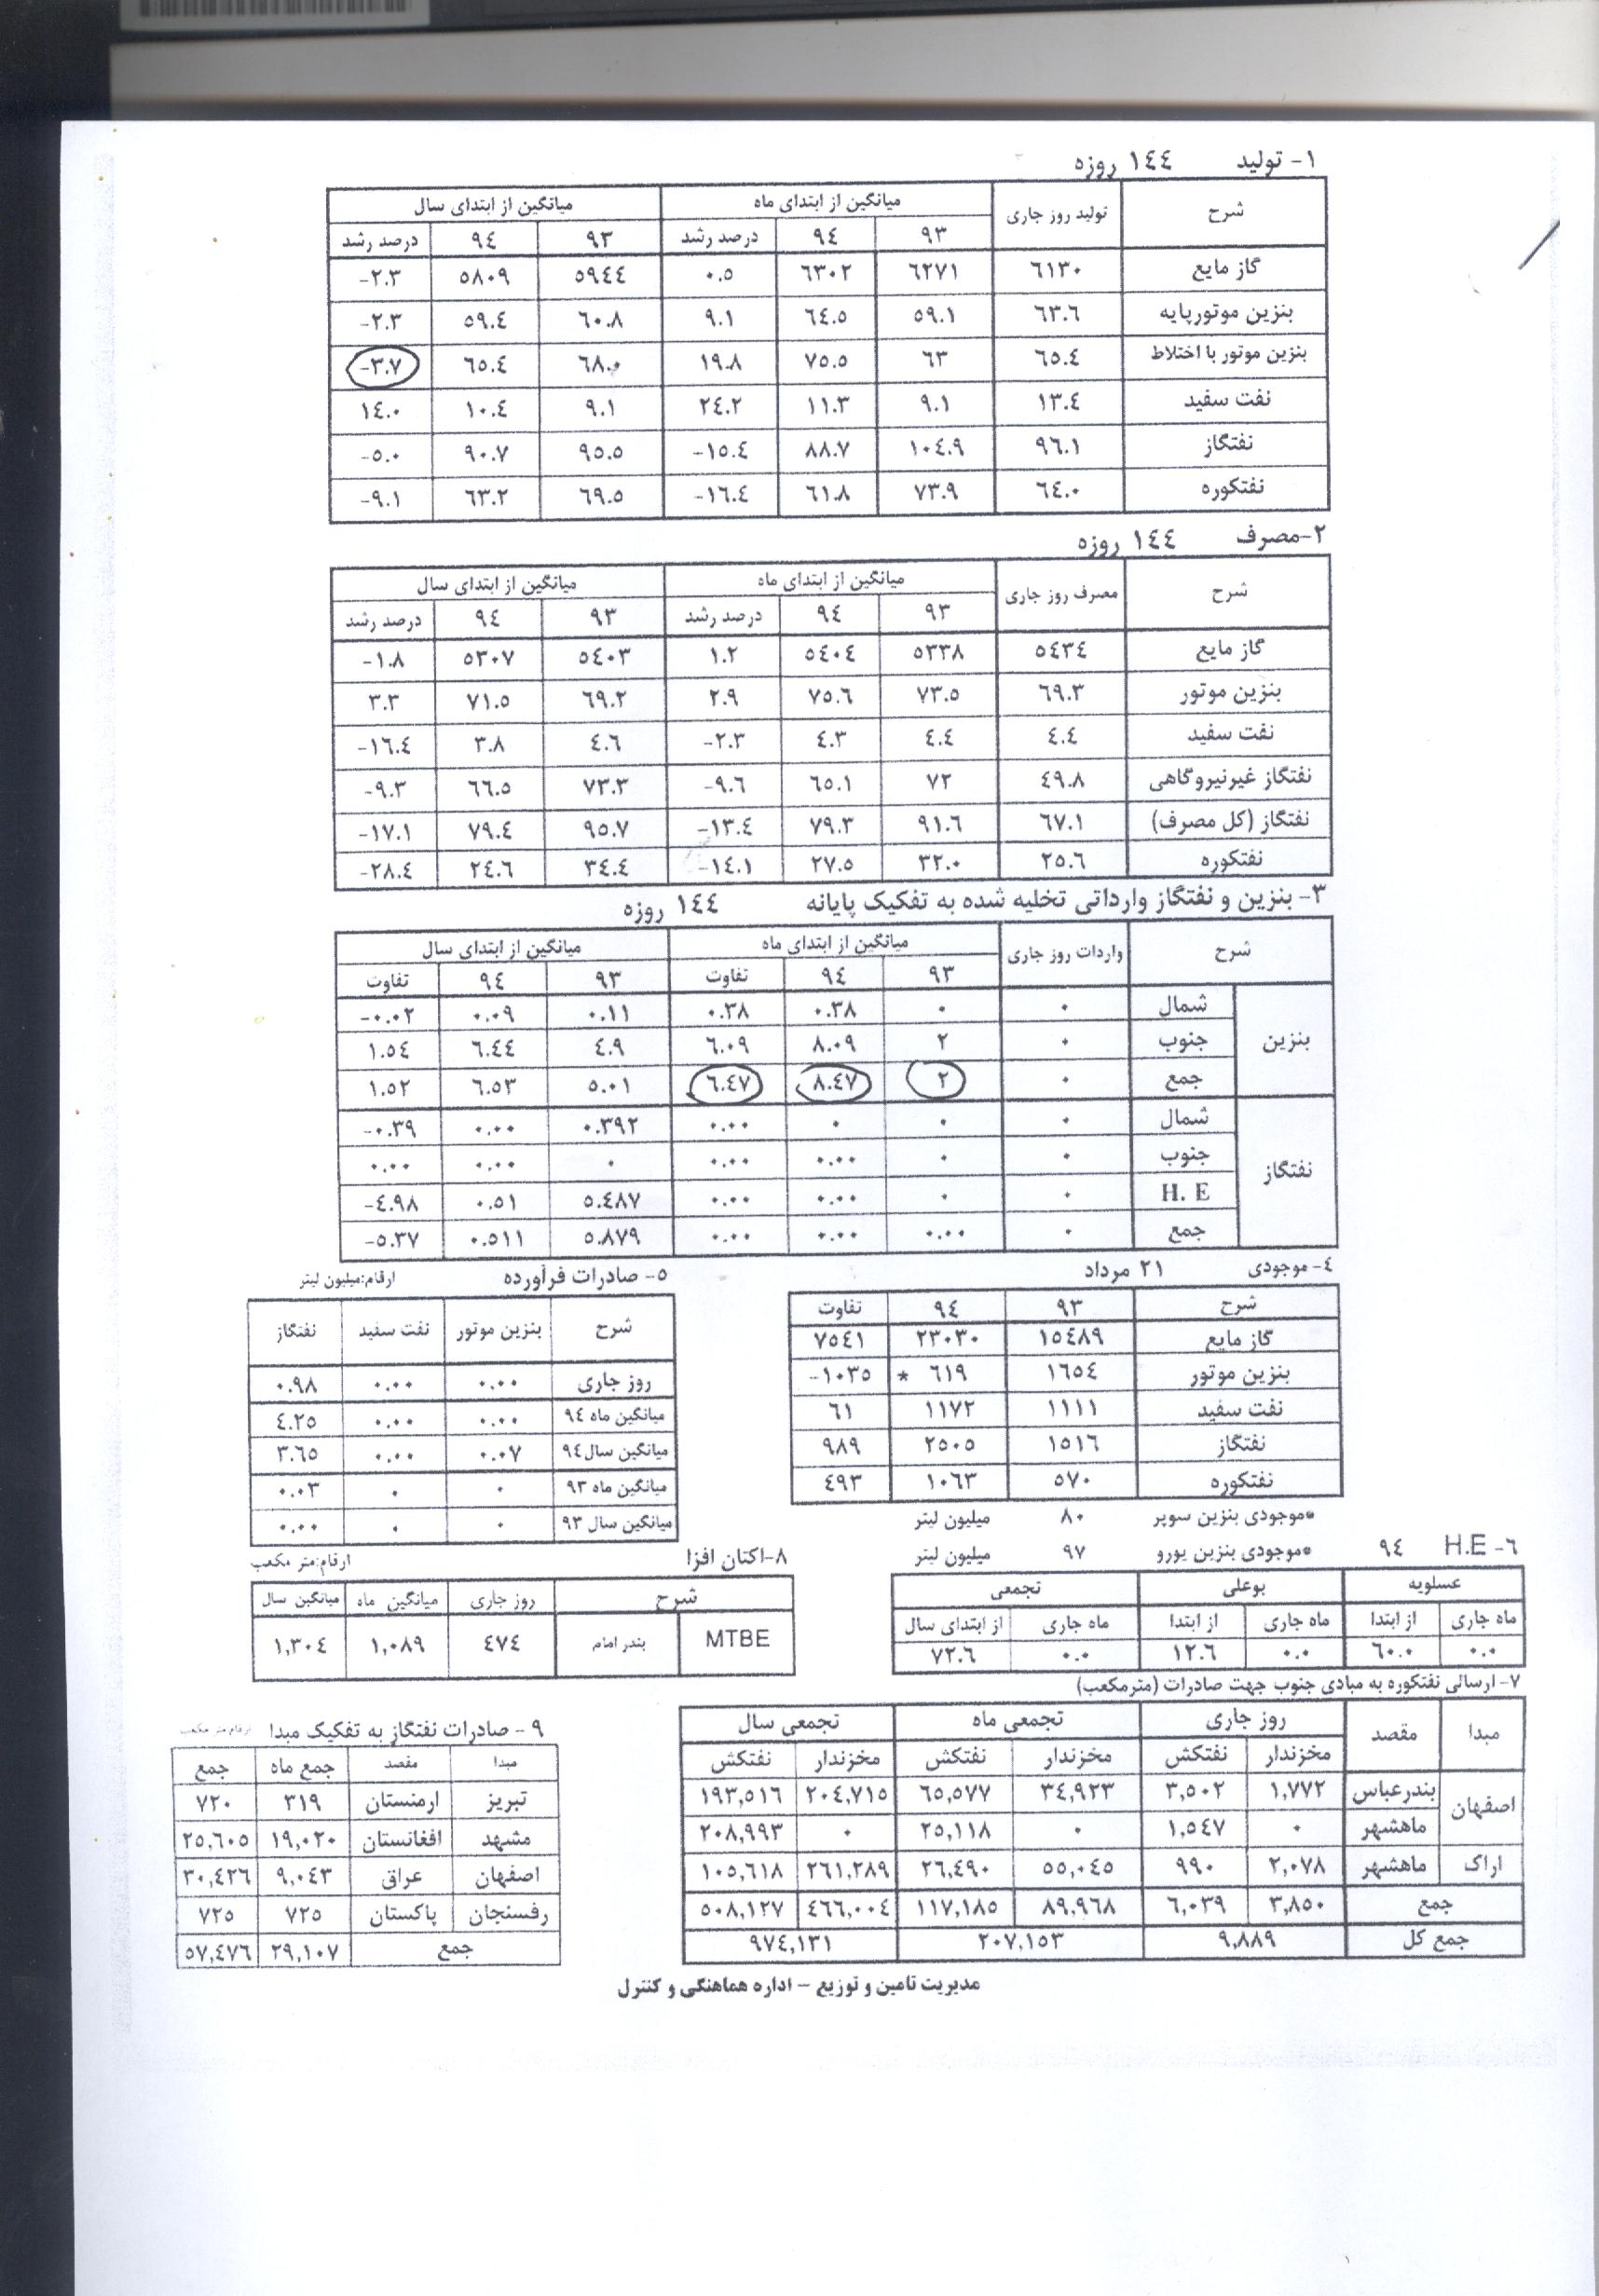 ۱- تولید ۱٤٤ روزه
شرح تولید روز جاری میانگین از ابتدای ماه میانگین از ابتدای سال
۹۳ ۹٤ درصد رشد ۹۳ ۹٤ درصد رشد
گاز مایع ٦۱۳۰ ٦۲۷۱ ٦۳۰۲ ۰.۵ ۵۹٤٤ ۵۸۰۹ -۲.۳
بنزین موتورپایه ٦۳.٦ ۵۹.۱ ٦٤.۵ ۹.۱ ٦۰.۸ ۵۹.٤ -۲.۳
بنزین موتور با اختلاط ٦۵.٤ ٦۳ ۷۵.۵ ۱۹.۸ ٦۸.۰ ٦۵.٤ -۳.۷
نفت سفید ۱۳.٤ ۹.۱ ۱۱.۳ ۲٤.۲ ۹.۱ ۱۰.٤ ۱٤.۰
نفتگاز ۹٦.۱ ۱۰٤.۹ ۸۸.۷ -۱۵.٤ ۹۵.۵ ۹۰.۷ -۵.۰
نفتکوره ٦٤.۰ ۷۳.۹ ٦۱.۸ -۱٦.٤ ٦۹.۵ ٦۳.۲ -۹.۱
۲-مصرف ۱٤٤ روزه
شرح مصرف روز جاری میانگین از ابتدای ماه میانگین از ابتدای سال
۹۳ ۹٤ درصد رشد ۹۳ ۹٤ درصد رشد
گاز مایع ۵٤۳٤ ۵۳۳۸ ۵٤۰٤ ۱.۲ ۵٤۰۳ ۵۳۰۷ -۱.۸
بنزین موتور ٦۹.۳ ۷۳.۵ ۷۵.٦ ۲.۹ ٦۹.۲ ۷۱.۵ ۳.۳
نفت سفید ٤.٤ ٤.٤ ٤.۳ -۲.۳ ٤.٦ ۳.۸ -۱٦.٤
نفتگاز غیرنیروگاهی ٤۹.۸ ۷۲ ٦۵.۱ -۹.٦ ۷۳.۳ ٦٦.۵ -۹.۳
نفتگاز (کل مصرف) ٦۷.۱ ۹۱.٦ ۷۹.۳ -۱۳.٤ ۹۵.۷ ۷۹.٤ -۱۷.۱
نفتکوره ۲۵.٦ ۳۲.۰ ۲۷.۵ -۱٤.۱ ۳٤.٤ ۲٤.٦ -۲۸.٤
۳- بنزین و نفتگاز وارداتی تخلیه شده به تفکیک پایانه ۱٤٤ روزه
شرح واردات روز جاری میانگین از ابتدای ماه میانگین از ابتدای سال
۹۳ ۹٤ تفاوت ۹۳ ۹٤ تفاوت
بنزین شمال ۰ ۰ ۰.۳۸ ۰.۳۸ ۰.۱۱ ۰.۰۹ -۰.۰۲
جنوب ۰ ۲ ۸.۰۹ ٦.۰۹ ٤.۹ ٦.٤٤ ۱.۵٤
جمع ۰ ۲ ۸.٤۷ ٦.٤۷ ۵.۰۱ ٦.۵۳ ۱.۵۲
نفتگاز شمال ۰ ۰ ۰ ۰.۰۰ ۰.۳۹۲ ۰.۰۰ -۰.۳۹
جنوب ۰ ۰ ۰.۰۰ ۰.۰۰ ۰ ۰.۰۰ ۰.۰۰
H. E ۰ ۰ ۰.۰۰ ۰.۰۰ ۵.٤۸۷ ۰.۵۱ -٤.۹۸
جمع ۰ ۰.۰۰ ۰.۰۰ ۰.۰۰ ۵.۸۷۹ ۰.۵۱۱ -۵.۳۷
٤- موجودی ۲۱ مرداد
شرح ۹۳ ۹٤ تفاوت
گاز مایع ۱۵٤۸۹ ۲۳۰۳۰ ۷۵٤۱
بنزین موتور ۱٦۵٤ ٦۱۹ * -۱۰۳۵
نفت سفید ۱۱۱۱ ۱۱۷۲ ٦۱
نفتگاز ۱۵۱٦ ۲۵۰۵ ۹۸۹
نفتکوره ۵۷۰ ۱۰٦۳ ٤۹۳
*موجودی بنزین سوپر ۸۰ میلیون لیتر
*موجودی بنزین یورو ۹۷ میلیون لیتر
۵- صادرات فرآورده ارقام:میلیون لیتر
شرح بنزین موتور نفت سفید نفتگاز
روز جاری ۰.۰۰ ۰.۰۰ ۰.۹۸
میانگین ماه ۹٤ ۰.۰۰ ۰.۰۰ ٤.۲۵
میانگین سال۹٤ ۰.۰۷ ۰.۰۰ ۳.٦۵
میانگین ماه ۹۳ ۰ ۰ ۰.۰۳
میانگین سال ۹۳ ۰ ۰ ۰.۰۰
٦- H.E ۹٤
عسلویه بوعلی تجمعی
ماه جاری از ابتدا ماه جاری از ابتدا ماه جاری از ابتدای سال
۰.۰ ٦۰.۰ ۰.۰ ۱۲.٦ ۰.۰ ۷۲.٦
۸-اکتان افزا ارقام:متر مکعب
شرح روز جاری میانگین ماه میانگین سال
MTBE بندر امام ٤۷٤ ۱,۰۸۹ ۱,۳۰٤
۷- ارسالی نفتکوره به مبادی جنوب جهت صادرات (مترمکعب)
مبدا مقصد روز جاری تجمعی ماه تجمعی سال
مخزندار نفتکش مخزندار نفتکش مخزندار نفتکش
اصفهان بندرعباس ۱,۷۷۲ ۳,۵۰۲ ۳٤,۹۲۳ ٦۵,۵۷۷ ۲۰٤,۷۱۵ ۱۹۳,۵۱٦
ماهشهر ۰ ۱,۵٤۷ ۰ ۲۵,۱۱۸ ۰ ۲۰۸,۹۹۳
اراک ماهشهر ۲,۰۷۸ ۹۹۰ ۵۵,۰٤۵ ۲٦,٤۹۰ ۲٦۱,۲۸۹ ۱۰۵,٦۱۸
جمع ۳,۸۵۰ ٦,۰۳۹ ۸۹,۹٦۸ ۱۱۷,۱۸۵ ٤٦٦,۰۰٤ ۵۰۸,۱۲۷
جمع کل ۹,۸۸۹ ۲۰۷,۱۵۳ ۹۷٤,۱۳۱
۹ - صادرات نفتگاز به تفکیک مبدا ارقام:متر مکعب
مبدا مقصد جمع ماه جمع
تبریز ارمنستان ۳۱۹ ۷۲۰
مشهد افغانستان ۱۹,۰۲۰ ۲۵,٦۰۵
اصفهان عراق ۹,۰٤۳ ۳۰,٤۲٦
رفسنجان پاکستان ۷۲۵ ۷۲۵
جمع ۲۹,۱۰۷ ۵۷,٤۷٦
مدیریت تامین و توزیع – اداره هماهنگی و کنترل